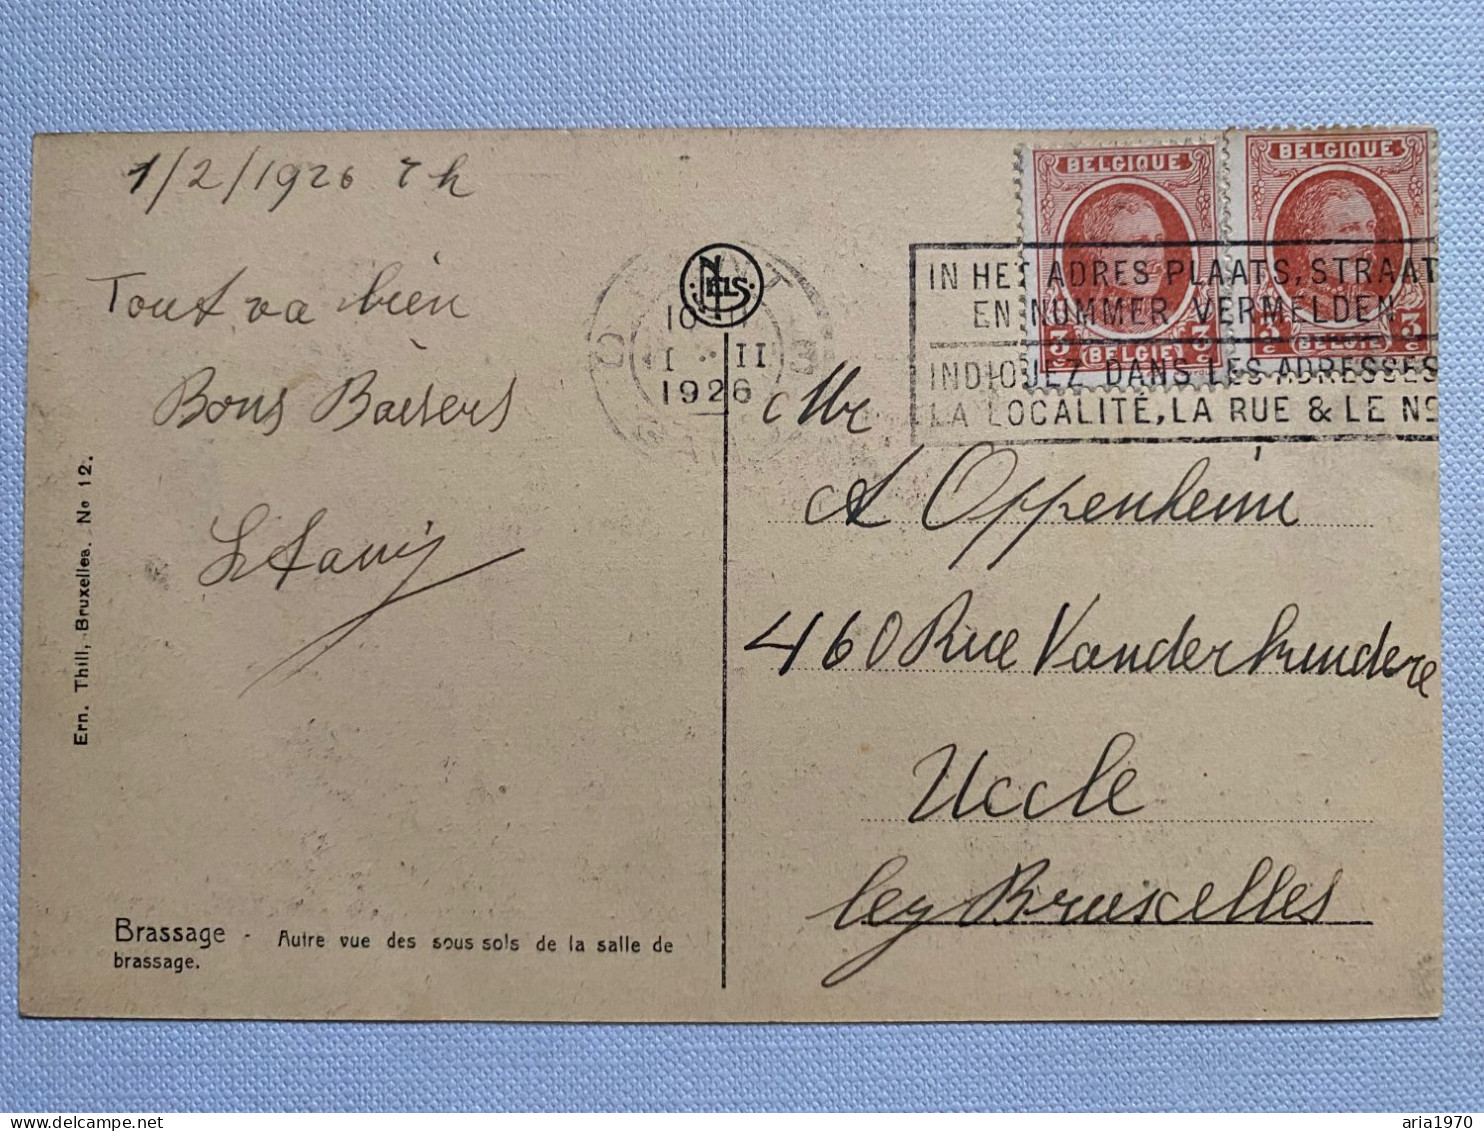 1/2/1926 7 h
Tout va bien
Bons Baisers
Ern. Thill, Bruxelles. No 12.
Brassage - Autre vue des sous sols de la salle de
brassage.
NELS
10
1 · II
1926
BELGIQUE
3 c 3 c
(BELGIE)
BELGIQUE
3 c 3 c
(BELGIE)
IN HET ADRES PLAATS, STRAAT
EN NUMMER VERMELDEN
INDIQUEZ DANS LES ADRESSES
LA LOCALITÉ, LA RUE & LE No
Mr
A Oppenheim
460 Rue Vanderkindere
Uccle
lez Bruxelles
aria1970